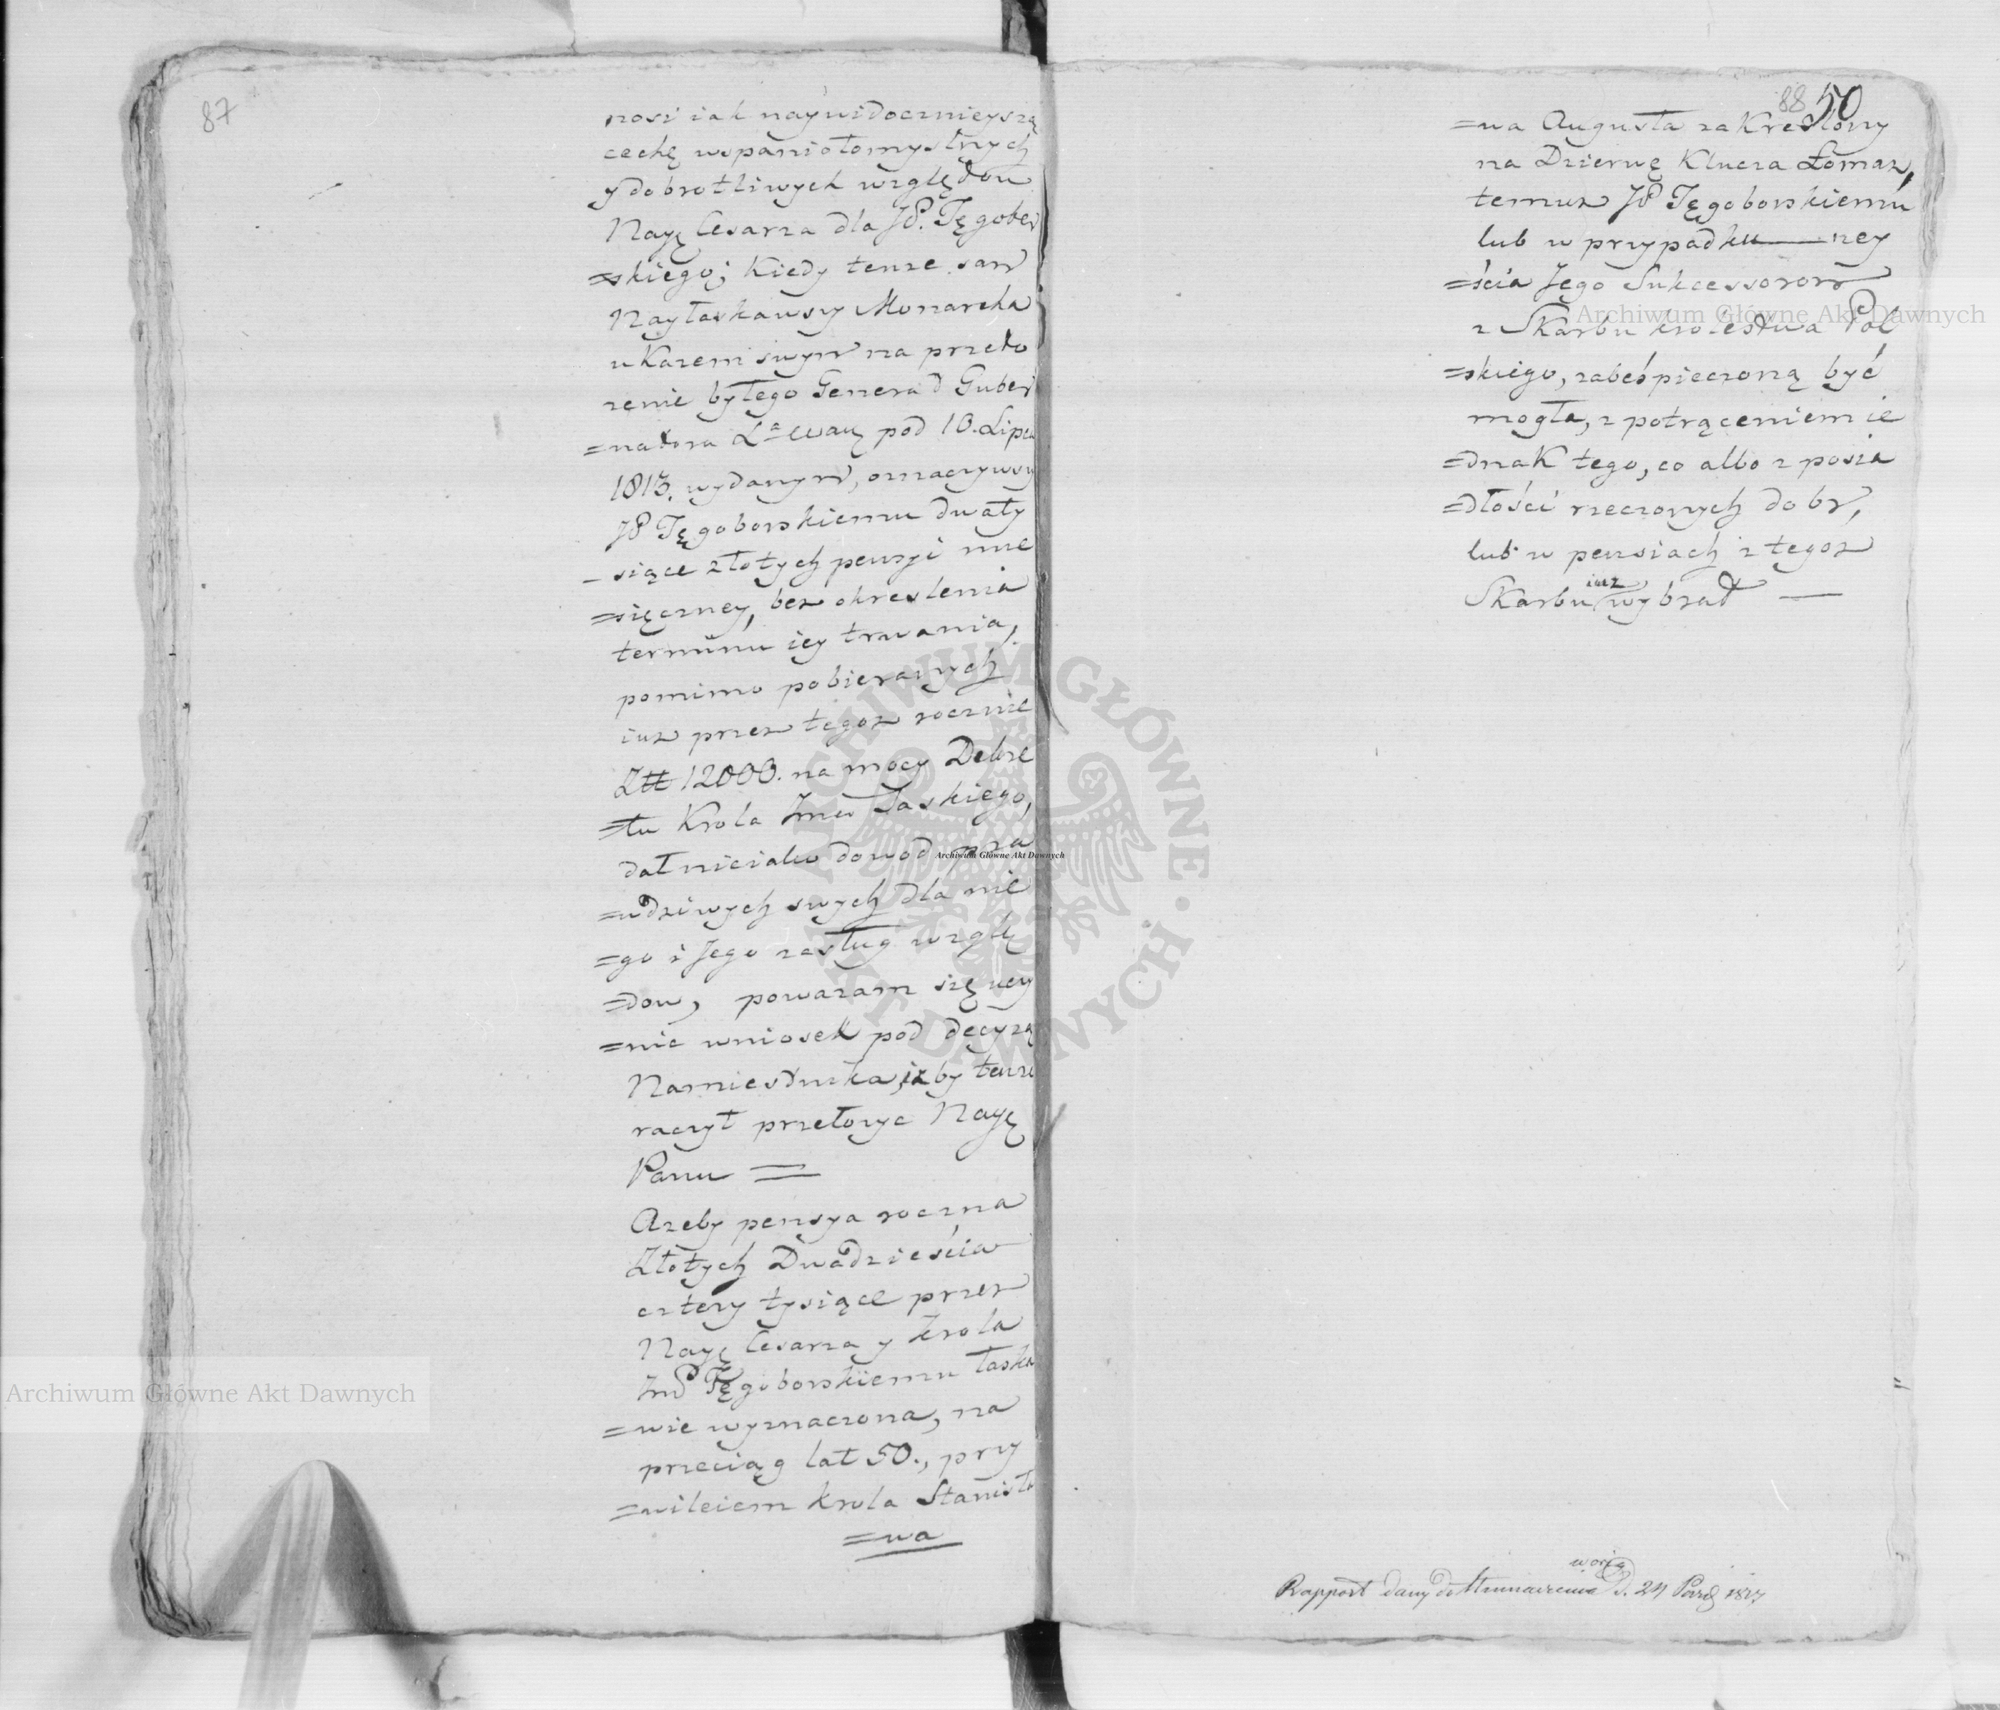 87
nosi iak naywidocznieyszą
cechę wspaniołomyslnych
y dobrotliwych względow
Nayę Cesarza dla JP. Tęgobor
=skiego; Kiedy tenze sam
Nayłaskawszy Monarcha
ukazem swym na przeło
zenie byłego Generał Guber
=natora pod 10. Lipca
1813. wydanym, oznaczywszy
JP Tęgoborskiemu dwa ty
=siące złotych pensyi mie
=sięczney, bez okreslenia
terminu iey trwania,
pomimo pobieranych
iuz przez tegoz rocznie
12000. na mocy Dekre
=tu Krola Saskiego,
dał nieiako dowod pra
=wdziwych swych dla nie
=go i Jego zasług wzglę
=dow, powazam się ucy
=nic wniosek pod decyzą
Namiestnika, izby tenze
raczył przełozyc Nayę
Panu =
Azeby pensya roczna
Złotych Dwadzieścia
cztery tysiące przez
Nayę Cesarza y Krola
JmP Tęgoborskiemu łaska
=wie wyznaczona, na
przeciąg lat 50., przy
=wileiem krola Stanisła
=wa
88 50
=wa Augusta zakreslony
na Dzierwę Klucza Łomaz,
temuz JP Tęgoborskiemu
lub w przypadku — zey
=ścia Jego Sukcessorom
z Skarbu krolestwa Pol
=skiego, zabeśpieczoną być
mogła, z potrąceniem ie
=dnak tego, co albo z posia
=dłości rzeczonych dobr,
lub w pensiach z tegoz
Skarbu iuz wybrał —
Rapport dany do tłumaczenia d. 24 1817
Archiwum Główne Akt Dawnych
Archiwum Główne Akt Dawnych
Archiwum Główne Akt Dawnych
ARCHIWUM GŁÓWNE · AKT DAWNYCH ·